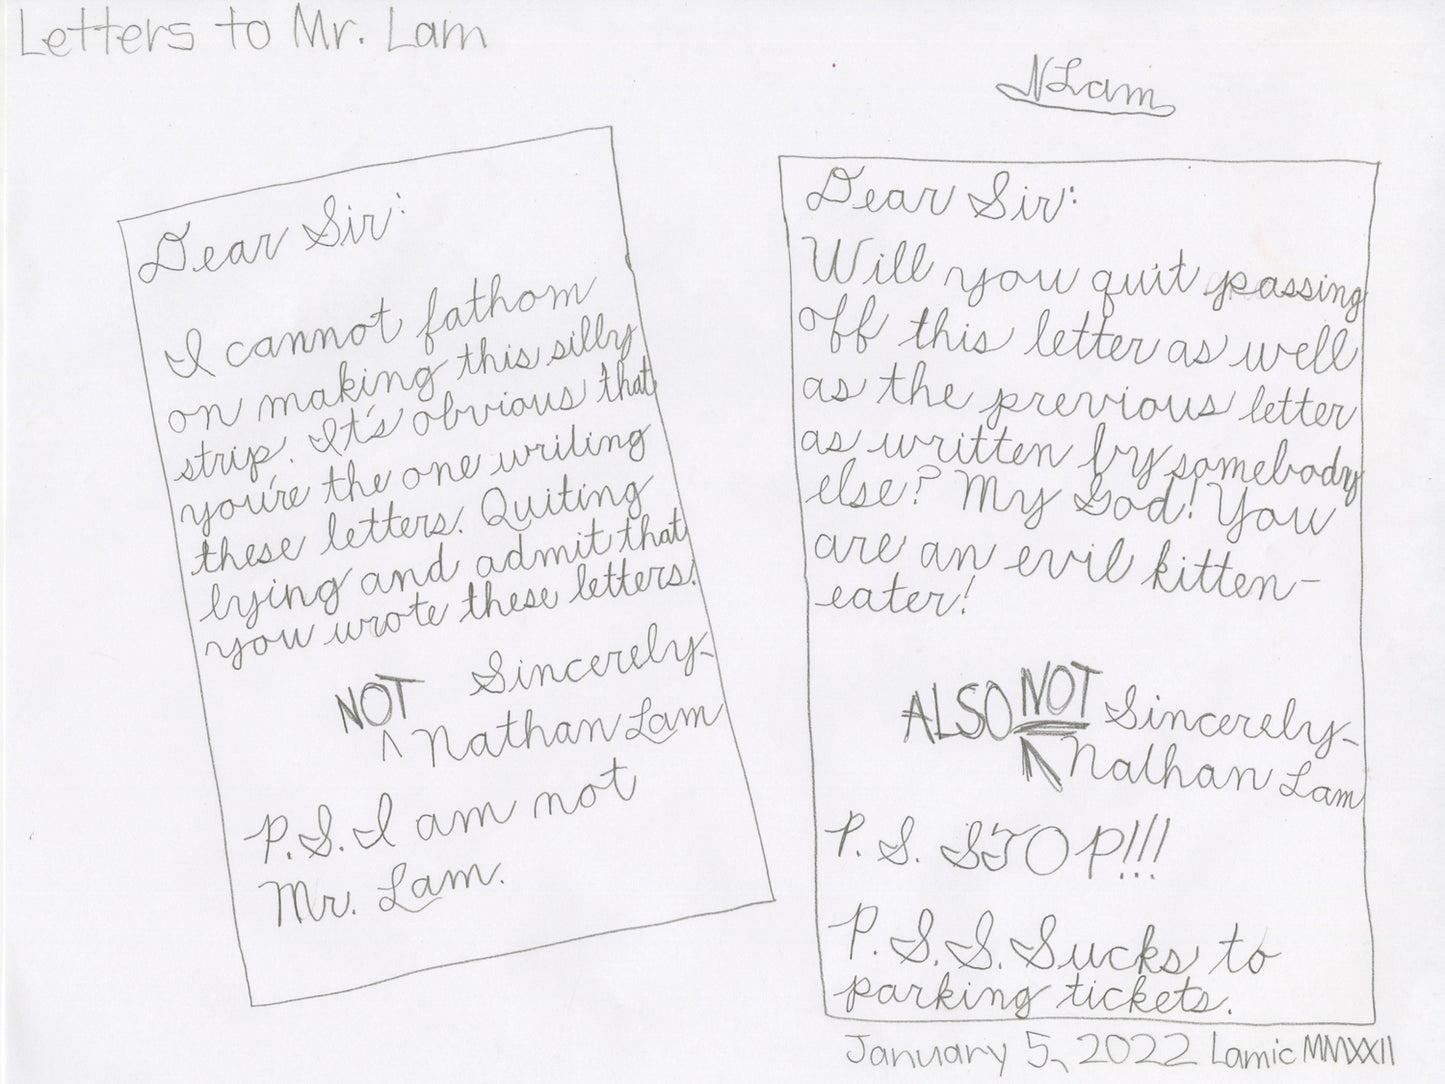 Letters to Mr. Lam
NLam
Dear Sir:
I cannot fathom
on making this silly
strip. It's obvious that
you're the one writing
these letters. Quiting
lying and admit that
you wrote these letters.
NOT Sincerely-
^ Nathan Lam
P.S. I am not
Mr. Lam.
Dear Sir:
Will you quit passing
off this letter as well
as the previous letter
as written by somebody
else? My God! You
are an evil kitten-
eater!
ALSO NOT Sincerely-
Nathan Lam
P.S. STOP!!!
P.S.S. Sucks to
parking tickets.
January 5, 2022 Lamic MMXXII